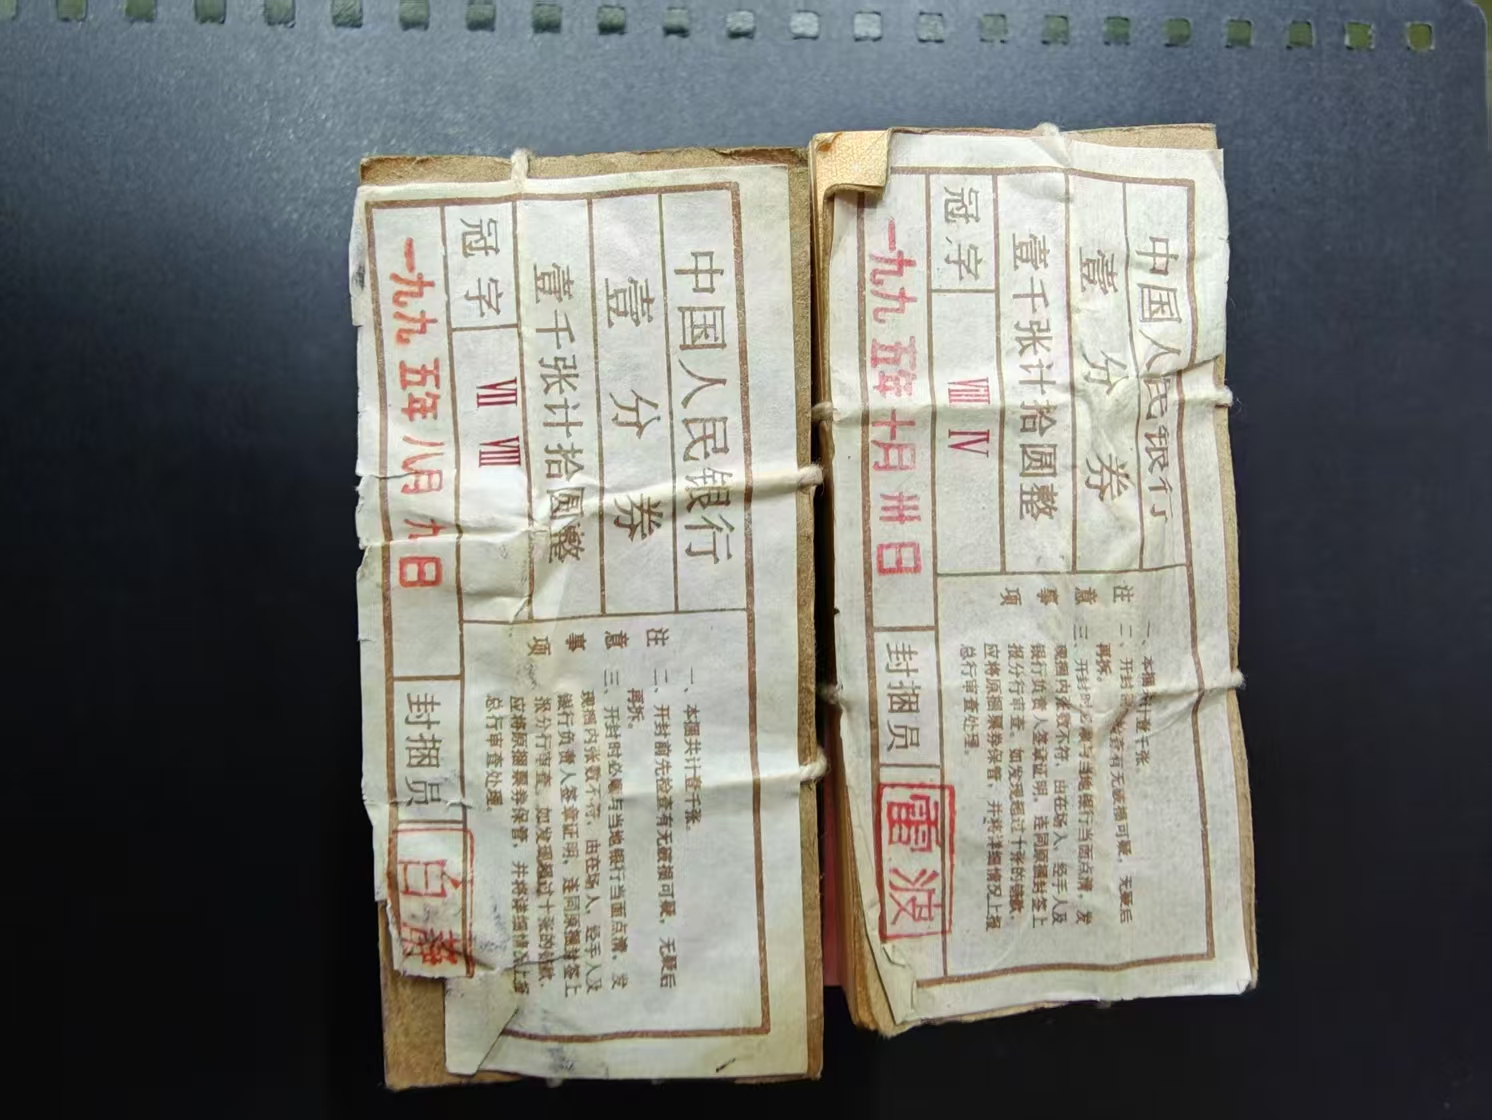 中国人民银行
壹分券
壹千张计拾圆整
冠字 Ⅶ Ⅷ
一九九五年八月九日
注意事项
一、本捆共计壹千张。
二、开封前先检查有无破损可疑，无疑后
再拆。
三、开封时必须与当地银行当面点清，发
现捆内张数不符，由在场人，经手人及
银行负责人签章证明，连同原捆封签上
报分行审查。如发现超过十张的错款，
应将原捆票券保管，并将详细情况上报
总行审查处理。
封捆员
中国人民银行
壹分券
壹千张计拾圆整
冠字 Ⅷ Ⅳ
一九九五年十月卅日
注意事项
一、本捆共计壹千张。
二、开封前先检查有无破损可疑，无疑后
再拆。
三、开封时必须与当地银行当面点清，发
现捆内张数不符，由在场人，经手人及
银行负责人签章证明，连同原捆封签上
报分行审查。如发现超过十张的错款，
应将原捆票券保管，并将详细情况上报
总行审查处理。
封捆员 雷波